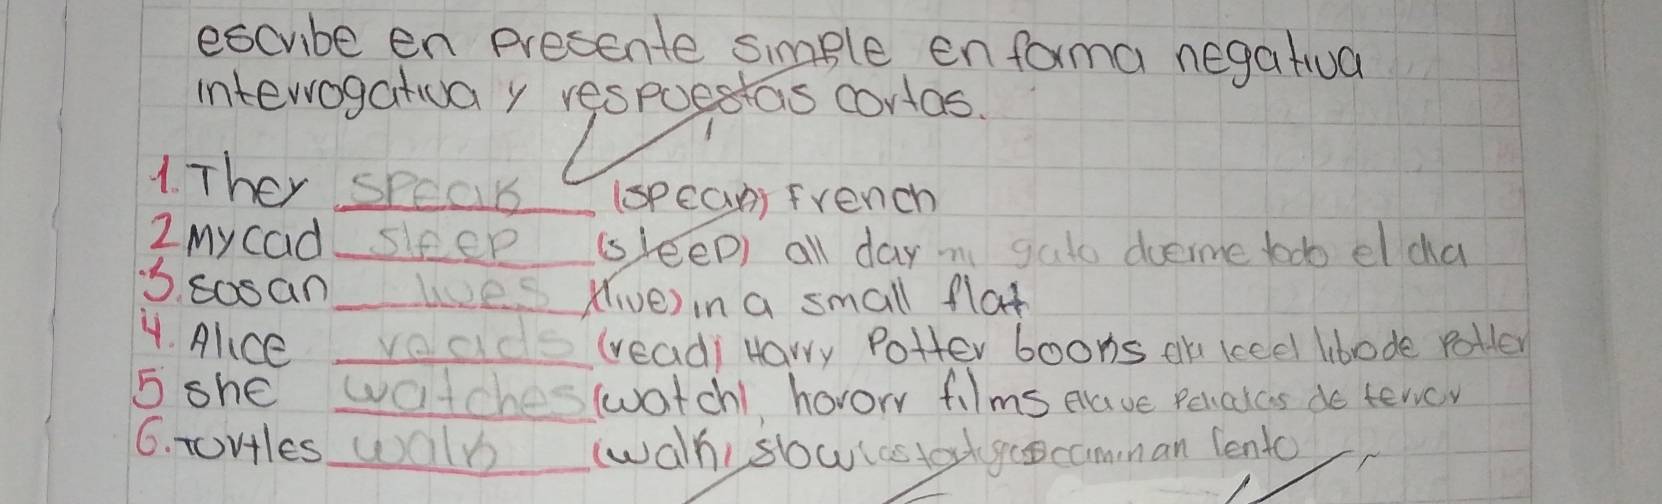 escribe en presente simple en forma negativa
interrogativa y respuestas cortas.
1. They speak (speak) French
2 My cad sleep (sleep) all day mi gato duerme todo el dia
3. sosan lives (live) in a small flat
4. Alice reads (read) Harry Potter books leeel librode Potter
5 she watches (watch) hororr films peliculas de terror
6. Tortles walk (walk) slow las tortugas caminan lento